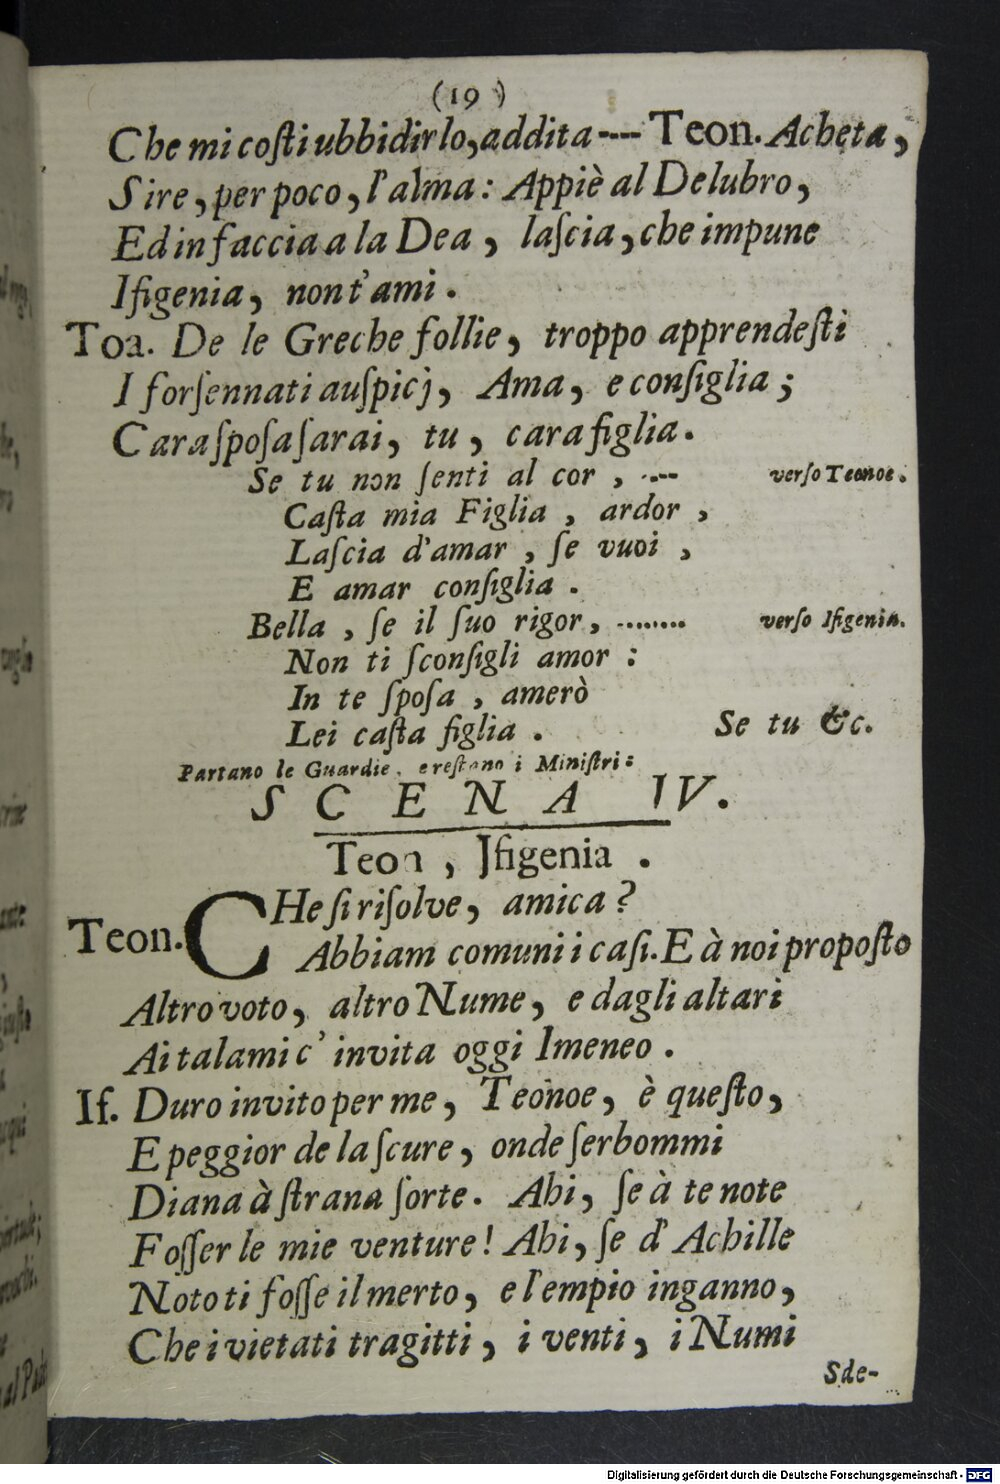 (19)
Che mi coſti ubbidirlo, addita ---- Teon. Acheta,
Sire, per poco, l'alma: Appiè al Delubro,
Ed in faccia a la Dea, laſcia, che impune
Ifigenia, non t'ami.
Toa. De le Greche follie, troppo apprendeſti
I forſennati auſpicj, Ama, e conſiglia;
Cara ſpoſa ſarai, tu, cara figlia.
Se tu non ſenti al cor, ---- verſo Teonoe.
Caſta mia Figlia, ardor,
Laſcia d'amar, ſe vuoi,
E amar conſiglia.
Bella, ſe il ſuo rigor, ........ verſo Ifigenia.
Non ti ſconſigli amor:
In te ſpoſa, amerò
Lei caſta figlia. Se tu &c.
Partano le Guardie, e reſtano i Miniſtri:
SCENA IV.
Teon, Ifigenia.
Teon. CHe ſi riſolve, amica?
Abbiam comuni i caſi. E à noi propoſto
Altro voto, altro Nume, e dagli altari
Ai talami c' invita oggi Imeneo.
If. Duro invito per me, Teonoe, è queſto,
E peggior de la ſcure, onde ſerbommi
Diana à ſtrana ſorte. Ahi, ſe à te note
Foſſer le mie venture! Ahi, ſe d' Achille
Noto ti foſſe il merto, e l'empio inganno,
Che i vietati tragitti, i venti, i Numi
Sde-
Digitalisierung gefördert durch die Deutsche Forschungsgemeinschaft - DFG